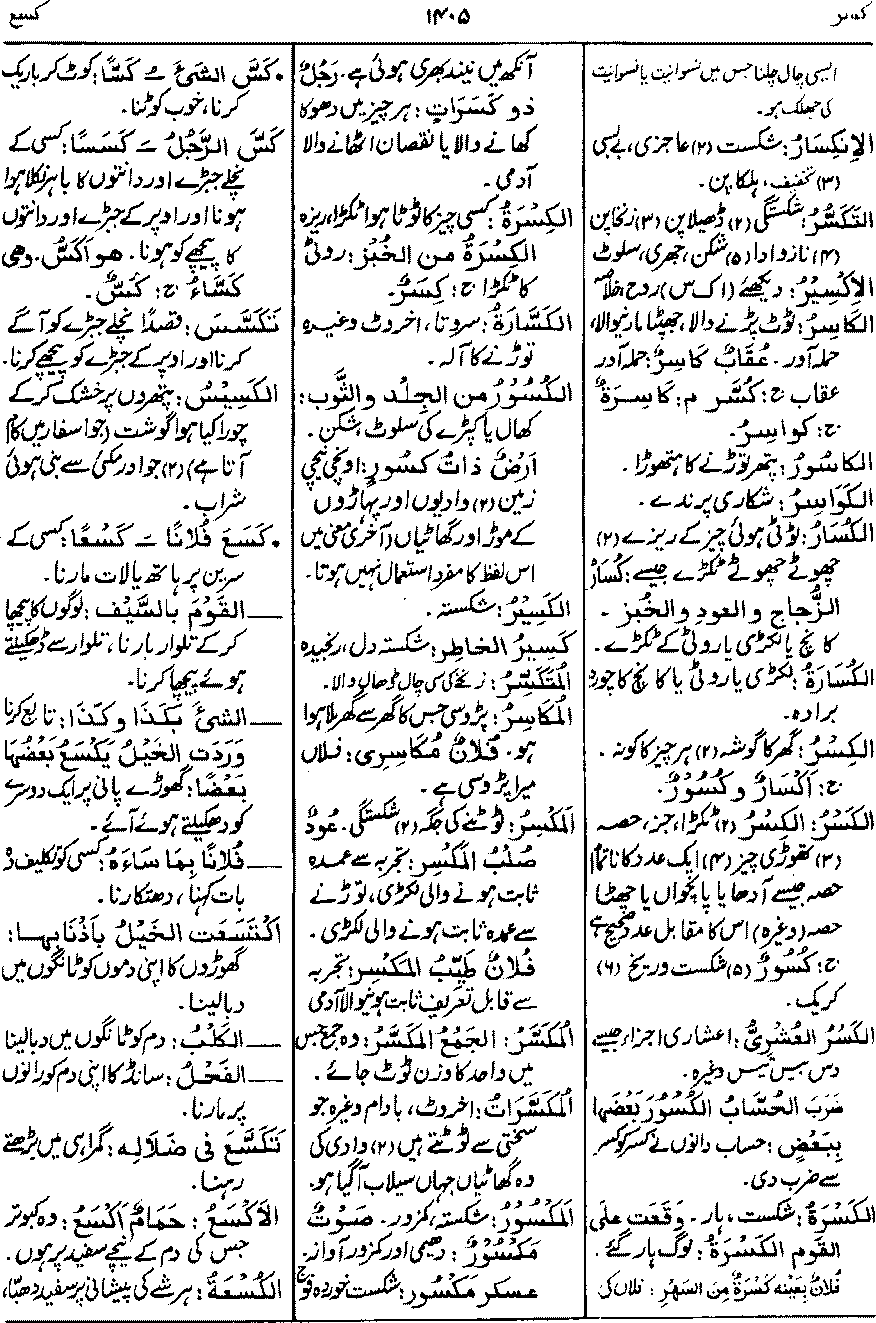 کسر
۱۴۰۵
کسع
ایسی چال چلنا جس میں نسوانیت یا نسوانیت
کی جھلک ہو۔
الاِنکِسَارُ: شکست (۲) عاجزی، بے بسی
(۳) تخفیف، ہلکاپن۔
التَّکَسُّرُ: شکستگی (۲) ڈھیلاپن (۳) زنخاپن
(۴) نازو ادا (۵) شکن، جھری، سلوٹ
الاِکْسِیرُ: دیکھئے (اک س) روح خلاصہ
الکَاسِرُ: ٹوٹ پڑنے والا، جھپٹا مارنیوالا،
حملہ آور۔ عُقَابٌ کَاسِرٌ: حملہ آور
عقاب ج: کُسَّر م: کَاسِرَةٌ
ج: کَوَاسِرُ۔
الکَاسُورُ: پتھر توڑنے کا ہتھوڑا۔
الکَوَاسِرُ: شکاری پرندے۔
الکُسَارُ: ٹوٹی ہوئی چیز کے ریزے (۲)
چھوٹے چھوٹے ٹکڑے جیسے: کُسَارُ
الزُّجاجِ و العودِ و الخُبْزِ۔
کانچ یا لکڑی یا روٹی کے ٹکڑے۔
الکُسَارَةُ: لکڑی یا روٹی یا کانچ کا چورہ
برادہ۔
الکِسْرُ: گھر کا گوشہ (۲) ہر چیز کا کونہ۔
ج: اَکْسَارٌ و کُسُوْرٌ۔
الکَسْرُ: الکِسْرُ (۲) ٹکڑا، جز، حصہ
(۳) تھوڑی چیز (۴) ایک عدد کا ناتمام
حصہ جیسے آدھا یا پانچواں یا چھٹا
حصہ (وغیرہ) اس کا مقابل عدد صحیح ہے
ج: کُسُورٌ (۵) شکست وریخ (۶)
کریک۔
الکَسْرُ العُشْرِیُّ: اعشاری اجزاء جیسے
دس بیس تیس وغیرہ۔
ضَرَبَ الحُسَّابُ الکُسُورَ بَعْضَهَا
بِبَعْضٍ: حساب دانوں نے کسر کو کسر
سے ضرب دی۔
الکَسْرَةُ: شکست، ہار۔ وَقَعَت عَلَی
القَومِ الکَسْرَةُ: لوگ ہار گئے۔
فُلَانٌ بِعَیْنِهِ کَسْرَةٌ مِنَ السَّهَرِ: فلاں کی
آنکھ میں نیند بھری ہوئی ہے۔ رَجُلٌ
ذو کَسَرَاتٍ: ہر چیز میں دھوکا
کھانے والا یا نقصان اٹھانے والا
آدمی۔
الکِسْرَةُ: کسی چیز کا ٹوٹا ہوا ٹکڑا، ریزہ
الکِسْرَةُ مِنَ الخُبْزِ: روٹی
کا ٹکڑا ج: کِسَرٌ۔
الکَسَّارَةُ: سروتا، اخروٹ وغیرہ
توڑنے کا آلہ۔
الکُسُوْرُ من الجِلْدِ والثَّوبِ:
کھال یا کپڑے کی سلوٹ، شکن۔
اَرْضٌ ذاتُ کسورٍ: اونچی نیچی
زمین (۲) وادیوں اور پہاڑوں
کے موڑ اور گھاٹیاں (آخری معنی میں
اس لفظ کا مفرد استعمال نہیں ہوتا۔
الکَسِیْرُ: شکستہ۔
کَسِیرُ الخاطِرِ: شکستہ دل، رنجیدہ
المُتَکَسِّرُ: زنخے کی سی چال ڈھال والا۔
المُکَاسِرُ: پڑوسی جس کا گھر سے گھر ملا ہوا
ہو۔ فُلَانٌ مُکَاسِرِی: فلاں
میرا پڑوسی ہے۔
المَکْسِرُ: ٹوٹنے کی جگہ (۲) شکستگی۔ عُودٌ
صُلْبُ المَکْسِرِ: تجربہ سے عمدہ
ثابت ہونے والی لکڑی، توڑنے
سے عمدہ ثابت ہونے والی لکڑی۔
فُلَانٌ طَیِّبُ المَکْسِرِ: تجربہ
سے قابل تعریف ثابت ہونیوالا آدمی
المُکَسَّرُ: الجَمْعُ المُکَسَّرُ: وہ جمع جس
میں واحد کا وزن ٹوٹ جائے۔
المُکَسَّرَاتُ: اخروٹ، بادام وغیرہ جو
سختی سے ٹوٹتے ہیں (۲) وادی کی
وہ گھاٹیاں جہاں سیلاب آگیا ہو۔
المَکْسُوْرُ: شکستہ، کمزور۔ صَوْتٌ
مَکْسُوْرٌ: دھیمی اور کمزور آواز۔
عسکر مَکْسُور: شکست خوردہ فوج
• کَسَّ الشیَٔ ـُ کَسًّا: کوٹ کر باریک
کرنا، خوب کوٹنا۔
کَسَّ الرَّجُلُ ـَ کَسَسًا: کسی کے
نچلے جبڑے اور دانتوں کا باہر نکلا ہوا
ہونا اور اوپر کے جبڑے اور دانتوں
کا پیچھے کو ہونا۔ هو اَکَسُّ۔ وهی
کَسَّاءُ ج: کُسٌّ۔
تَکَسَّسَ: قصداً نچلے جبڑے کو آگے
کرنا اور اوپر کے جبڑے کو پیچھے کرنا۔
الکَسِیْسُ: پتھروں پر خشک کرکے
چورا کیا ہوا گوشت (جو اسفار میں کام
آتا ہے) (۲) جو اور مکئی سے بنی ہوئی
شراب۔
• کَسَعَ فُلَانًا ـَ کَسْعًا: کسی کے
سرین پر ہاتھ یا لات مارنا۔
— القَوْمَ بالسَّیْفِ: لوگوں کا پیچھا
کرکے تلوار مارنا، تلوار سے ڈھکیلتے
ہوئے پیچھا کرنا۔
— الشیَٔ بکَذَا و کَذَا: تابع کرنا
وَرَدَتِ الخَیْلُ یَکْسَعُ بَعْضُهَا
بَعْضًا: گھوڑے پانی پر ایک دوسرے
کو دھکیلتے ہوئے آئے۔
— فُلَانًا بِمَا سَاءَهُ: کسی کو تکلیف دہ
بات کہنا، دھتکارنا۔
اکْتَسَعَتِ الخَیْلُ بِاَذْنَابِهَا:
گھوڑوں کا اپنی دموں کو ٹانگوں میں
دبا لینا۔
— الکَلْبُ: دم کو ٹانگوں میں دبا لینا
— الفَحْلُ: سانڈ کا اپنی دم کو رانوں
پر مارنا۔
تَکَسَّعَ فی ضَلَالِهِ: گمراہی میں بڑھتے
رہنا۔
الاَکْسَعُ: حَمَامٌ اَکْسَعُ: وہ کبوتر
جس کی دم کے نیچے سفید پر ہوں۔
الکُسْعَةُ: ہر شے کی پیشانی پر سفید دھبّا،